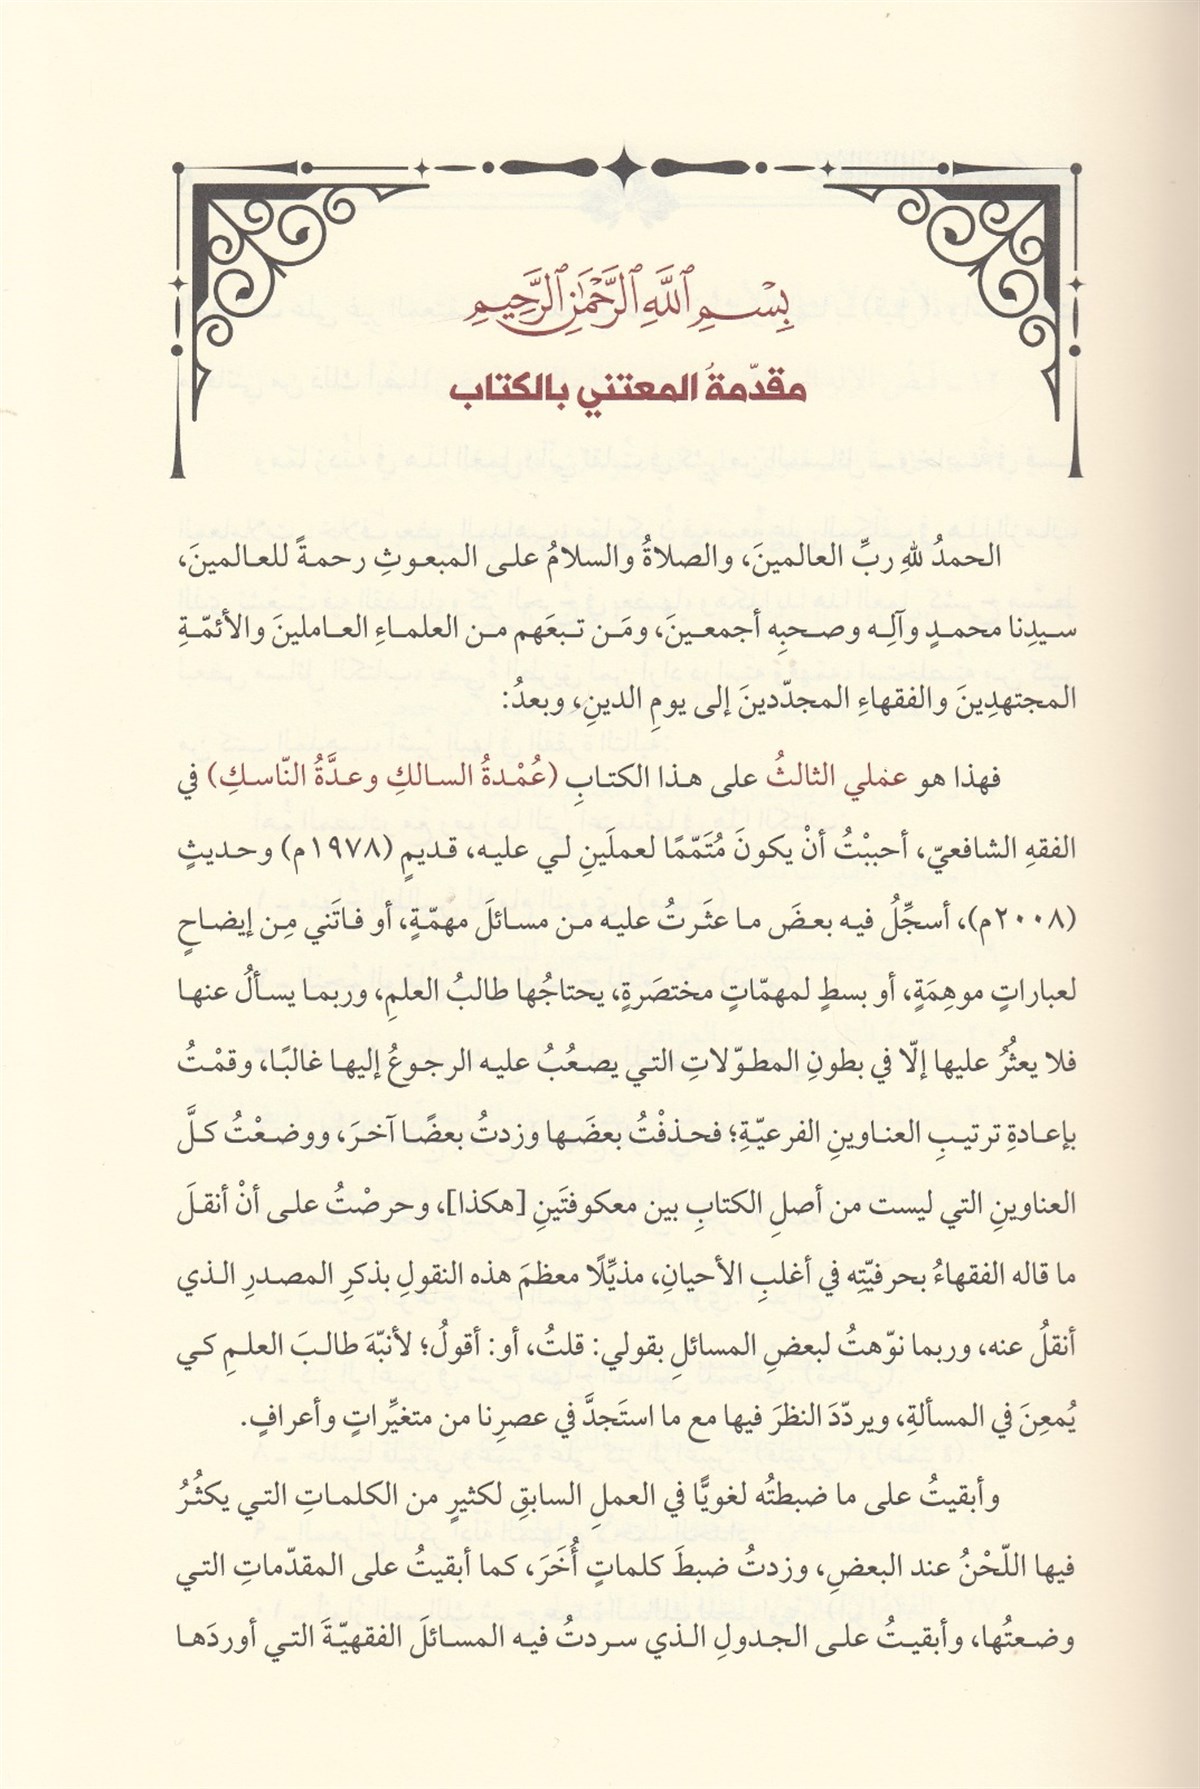 بِسْمِ ٱللَّهِ ٱلرَّحْمَٰنِ ٱلرَّحِيمِ
مقدّمةُ المعتني بالكتاب
الحمدُ للهِ ربِّ العالمينَ، والصلاةُ والسلامُ على المبعوثِ رحمةً للعالمينَ،
سيدِنا محمدٍ وآلِه وصحبِه أجمعينَ، ومَن تبعَهم من العلماءِ العاملينَ والأئمّةِ
المجتهدِينَ والفقهاءِ المجدّدينَ إلى يومِ الدينِ، وبعدُ:
فهذا هو عملي الثالثُ على هذا الكتابِ (عُمْدةُ السالكِ وعدَّةُ النّاسكِ) في
الفقهِ الشافعيّ، أحببْتُ أنْ يكونَ مُتَمّمًا لعملَينِ لي عليه، قديمٍ (١٩٧٨م) وحديثٍ
(٢٠٠٨م)، أسجِّلُ فيه بعضَ ما عثَرتُ عليه من مسائلَ مهمّةٍ، أو فاتَني مِن إيضاحٍ
لعباراتٍ موهِمَةٍ، أو بسطٍ لمهمّاتٍ مختصَرةٍ، يحتاجُها طالبُ العلمِ، وربما يسألُ عنها
فلا يعثُرُ عليها إلّا في بطونِ المطوّلاتِ التي يصعُبُ عليه الرجوعُ إليها غالبًا، وقمْتُ
بإعادةِ ترتيبِ العناوينِ الفرعيّةِ؛ فحذفْتُ بعضَها وزدتُ بعضًا آخرَ، ووضعْتُ كلَّ
العناوينِ التي ليست من أصلِ الكتابِ بين معكوفتَينِ [هكذا]، وحرصْتُ على أنْ أنقلَ
ما قاله الفقهاءُ بحرفيّتِه في أغلبِ الأحيانِ، مذيِّلًا معظمَ هذه النقولِ بذكرِ المصدرِ الذي
أنقلُ عنه، وربما نوّهتُ لبعضِ المسائلِ بقولي: قلتُ، أو: أقولُ؛ لأنبّهَ طالبَ العلمِ كي
يُمعِنَ في المسألةِ، ويردّدَ النظرَ فيها مع ما استَجدَّ في عصرِنا من متغيِّراتٍ وأعرافٍ.
وأبقيتُ على ما ضبطتُه لغويًّا في العملِ السابقِ لكثيرٍ من الكلماتِ التي يكثُرُ
فيها اللّحْنُ عند البعضِ، وزدتُ ضبطَ كلماتٍ أُخَرَ، كما أبقيتُ على المقدّماتِ التي
وضعتُها، وأبقيتُ على الجدولِ الذي سردتُ فيه المسائلَ الفقهيّةَ التي أوردَها